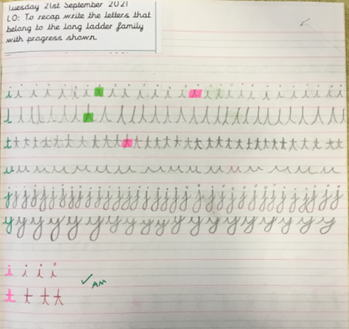 Tuesday 21st September 2021
LO: To recap write the letters that
belong to the long ladder family
with progress shown.
i i i i i i i i i i i i i i i i i i i i i i i
l l l l l l l l l l l l l l l l l l l l l l l
t t t t t t t t t t t t t t t t t t t t t t t
u u u u u u u u u u u u u u u
j j j j j j j j j j j j j j j j j j j j j j j
y y y y y y y y y y y y y y y y y y
i i i i
t t t t
AM